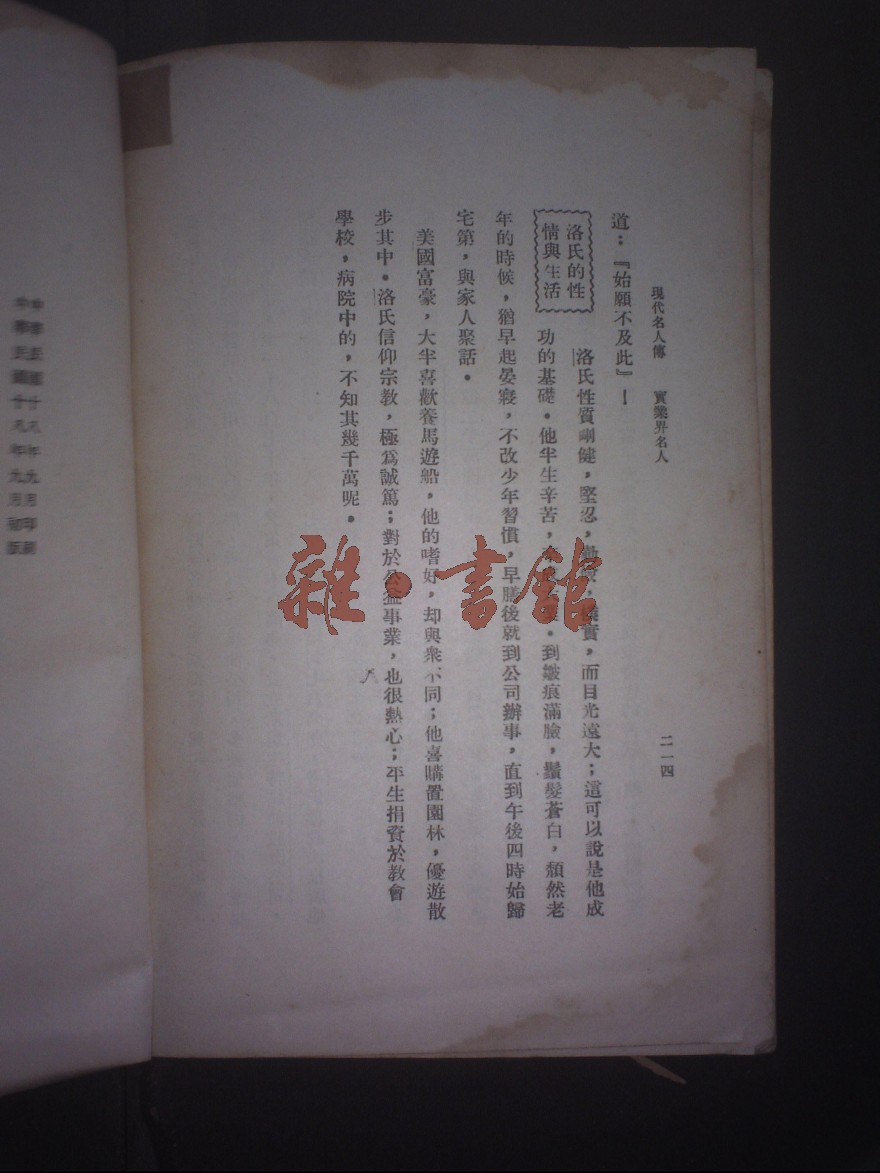 現代名人傳 實業界名人
二一四
道：『始願不及此』！
洛氏的性
情與生活
洛氏性質剛健，堅忍，勤㤿，樸實，而目光遠大；這可以說是他成
功的基礎。他半生辛苦，到皺痕滿臉，鬚髮蒼白，頹然老
年的時候，猶早起晏寢，不改少年習慣，早膳後就到公司辦事，直到午後四時始歸
宅第，與家人聚話。
美國富豪，大半喜歡養馬遊船，他的嗜好，却與衆不同；他喜購置園林，優遊散
步其中。洛氏信仰宗教，極爲誠篤；對於公益事業，也很熱心；平生捐資於教會
學校，病院中的，不知其幾千萬呢。
雜·書館
中華民國十九年九月印刷
中華民國十九年九月初版